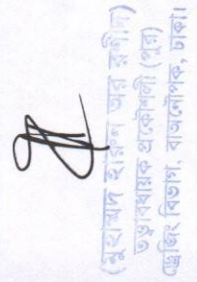 (মুহাম্মদ হারুন অর রশীদ)
তত্ত্বাবধায়ক প্রকৌশলী (পুর)
ড্রেজিং বিভাগ, বাঅনৌপক, ঢাকা।